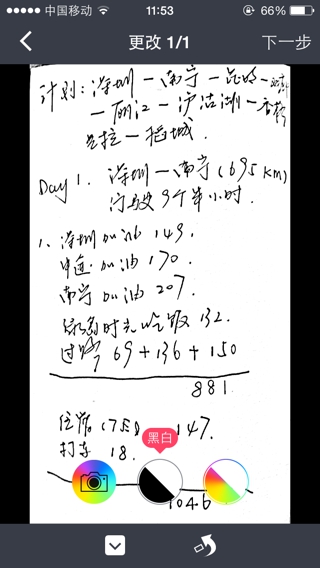 中国移动 11:53 66%
更改 1/1 下一步
计划:深圳一南宁一昆明一
一丽江一泸沽湖一香格
里拉一稻城.
Day 1. 深圳一南宁(695 KM)
行驶9个半小时.
1、深圳加油 149.
中途加油 170.
南宁加油 207.
吃饭 132.
过路 69+136+150
881
住宿 147.
打车 18.
黑白
1046